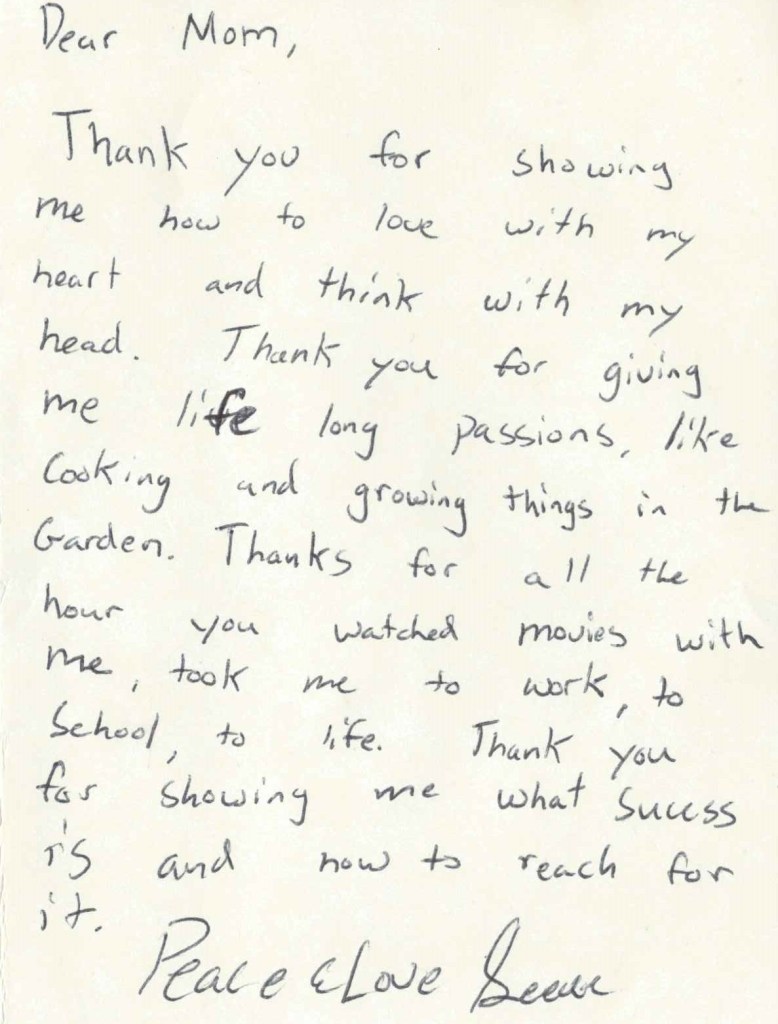 Dear Mom,
Thank you for showing
me how to love with my
heart and think with my
head. Thank you for giving
me life long passions, like
Cooking and growing things in the
Garden. Thanks for all the
hour you watched movies with
me, took me to work, to
School, to life. Thank you
for showing me what sucess
is and how to reach for
it.
Peace & Love